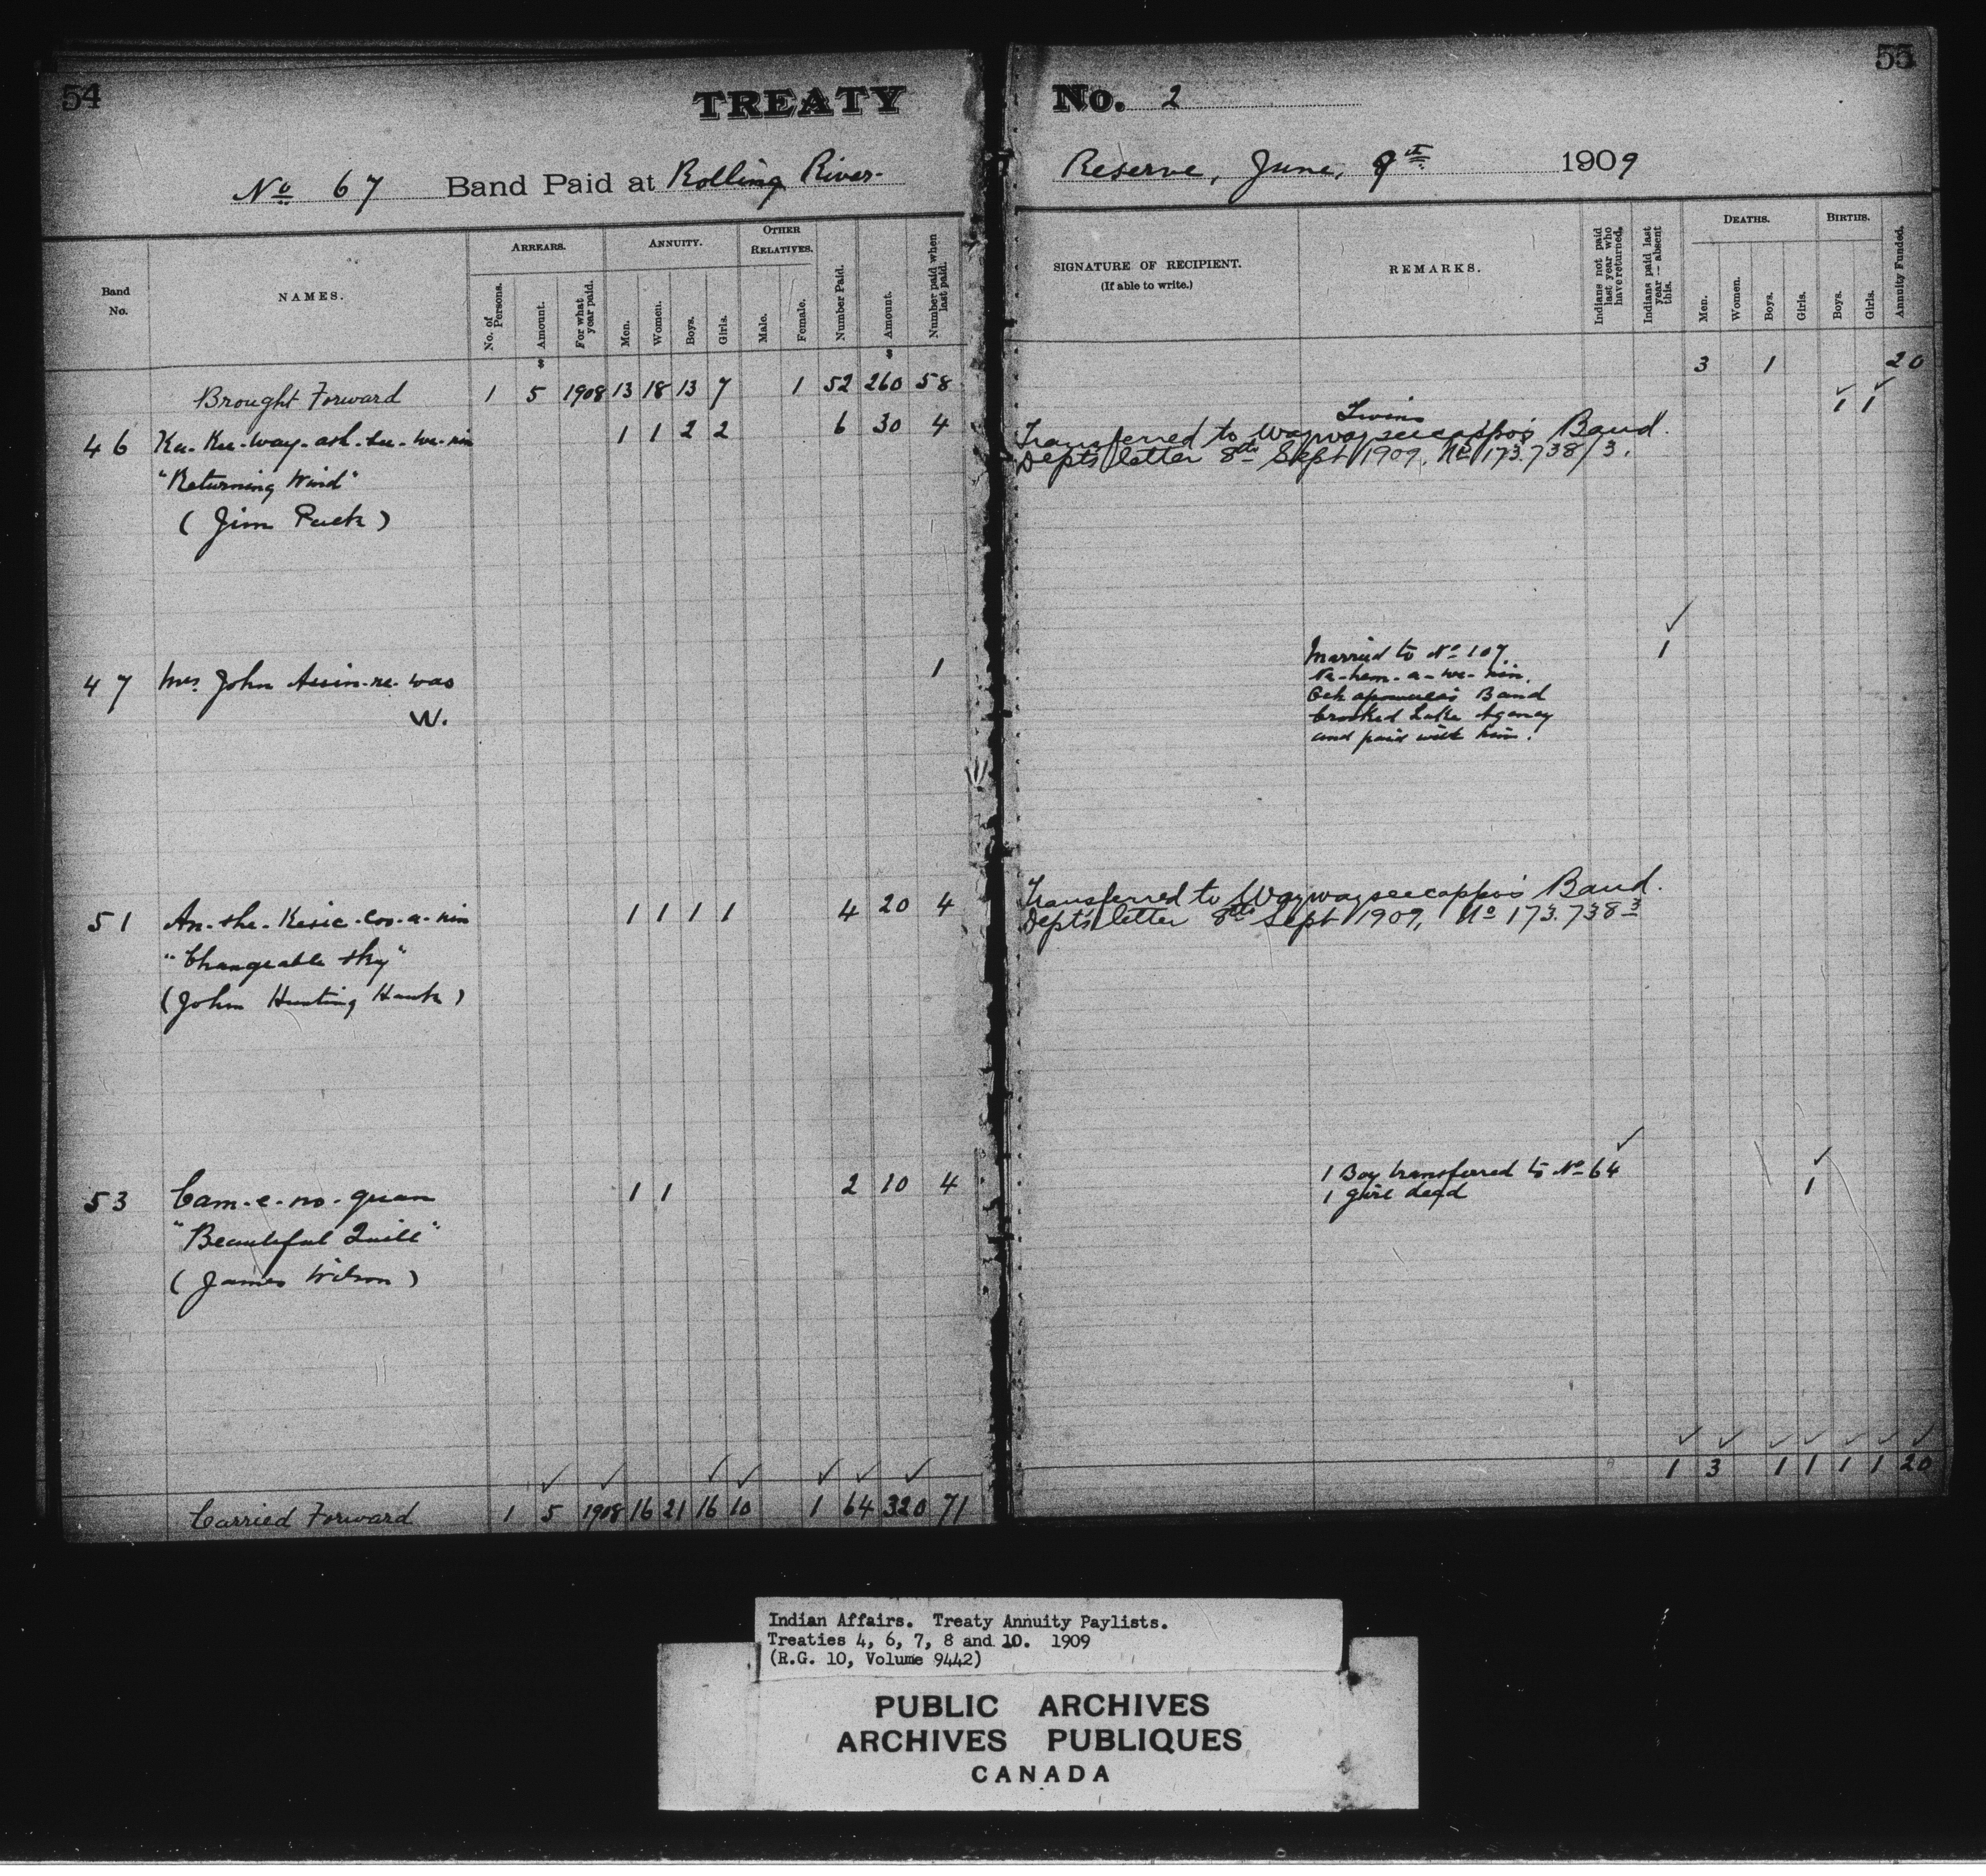 54
TREATY
No. 2
55
No 67 Band Paid at Rolling River
Reserve, June, 9th 1909
Band No.
NAMES.
ARREARS.
No. of Persons.
Amount.
For what year paid.
ANNUITY.
Men.
Women.
Boys.
Girls.
OTHER RELATIVES.
Male.
Female.
Number Paid.
Amount.
Number paid when last paid.
SIGNATURE OF RECIPIENT.
(If able to write.)
REMARKS.
Indians not paid last year who have returned.
Indians paid last year — absent this.
DEATHS.
Men.
Women.
Boys.
Girls.
BIRTHS.
Boys.
Girls.
Annuity Funded.
$ $
Brought Forward 1 5 1908 13 18 13 7 1 52 260 58 3 1 20
46 1 1 2 2 6 30 4 Twins 1 1
Transferred to Waywayseecappo's Band.
Dept's letter 8th Sept 1909, No 173.738/3.
"Returning Wind"
(Jim Puck)
47 Mrs John Assin-ne-was 1 Married to No 107 1
W.
Band
Crooked Lake Agency
and paid with him.
51 An-she-Kesic-coo-a-nin 1 1 1 1 4 20 4 Transferred to Waywayseecappo's Band.
Dept's letter 8th Sept 1909, No 173.738-3
"Changeable Sky"
(John Hunting Hawk)
53 Cam-e-no-quan 1 1 2 10 4 1 Boy transferred to No 64
1 girl dead 1
"Beautiful Quill"
(James Wilson)
Carried Forward 1 5 1908 16 21 16 10 1 64 320 71 1 3 1 1 1 1 20
Indian Affairs. Treaty Annuity Paylists.
Treaties 4, 6, 7, 8 and 10. 1909
(R.G. 10, Volume 9442)
PUBLIC ARCHIVES
ARCHIVES PUBLIQUES
CANADA